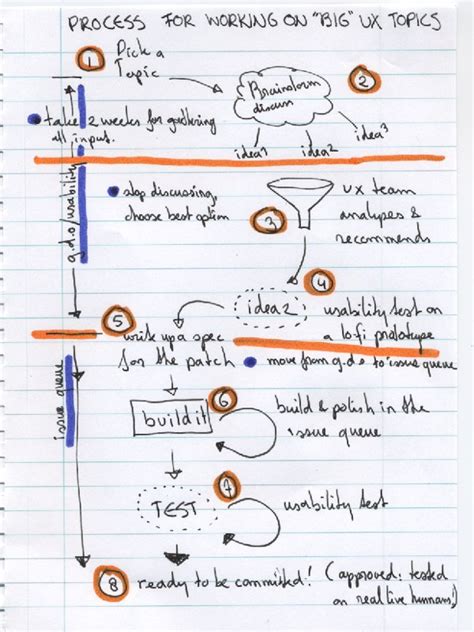 PROCESS FOR WORKING ON "BIG" UX TOPICS
1 Pick a
Topic
2
Brainstorm
discuss
idea1 idea2 idea3
take 2 weeks for gathering
all input.
g.d.o/usability
stop discussing,
choose best option
3
UX team
analyzes &
recommends
4
idea2
usability test on
a lo-fi prototype
5
write up a spec
for the patch
move from g.d.o to issue queue
issue queue
6
build it
build & polish in the
issue queue
7
TEST
usability test
8 ready to be committed! (approved: tested
on real live humans!)